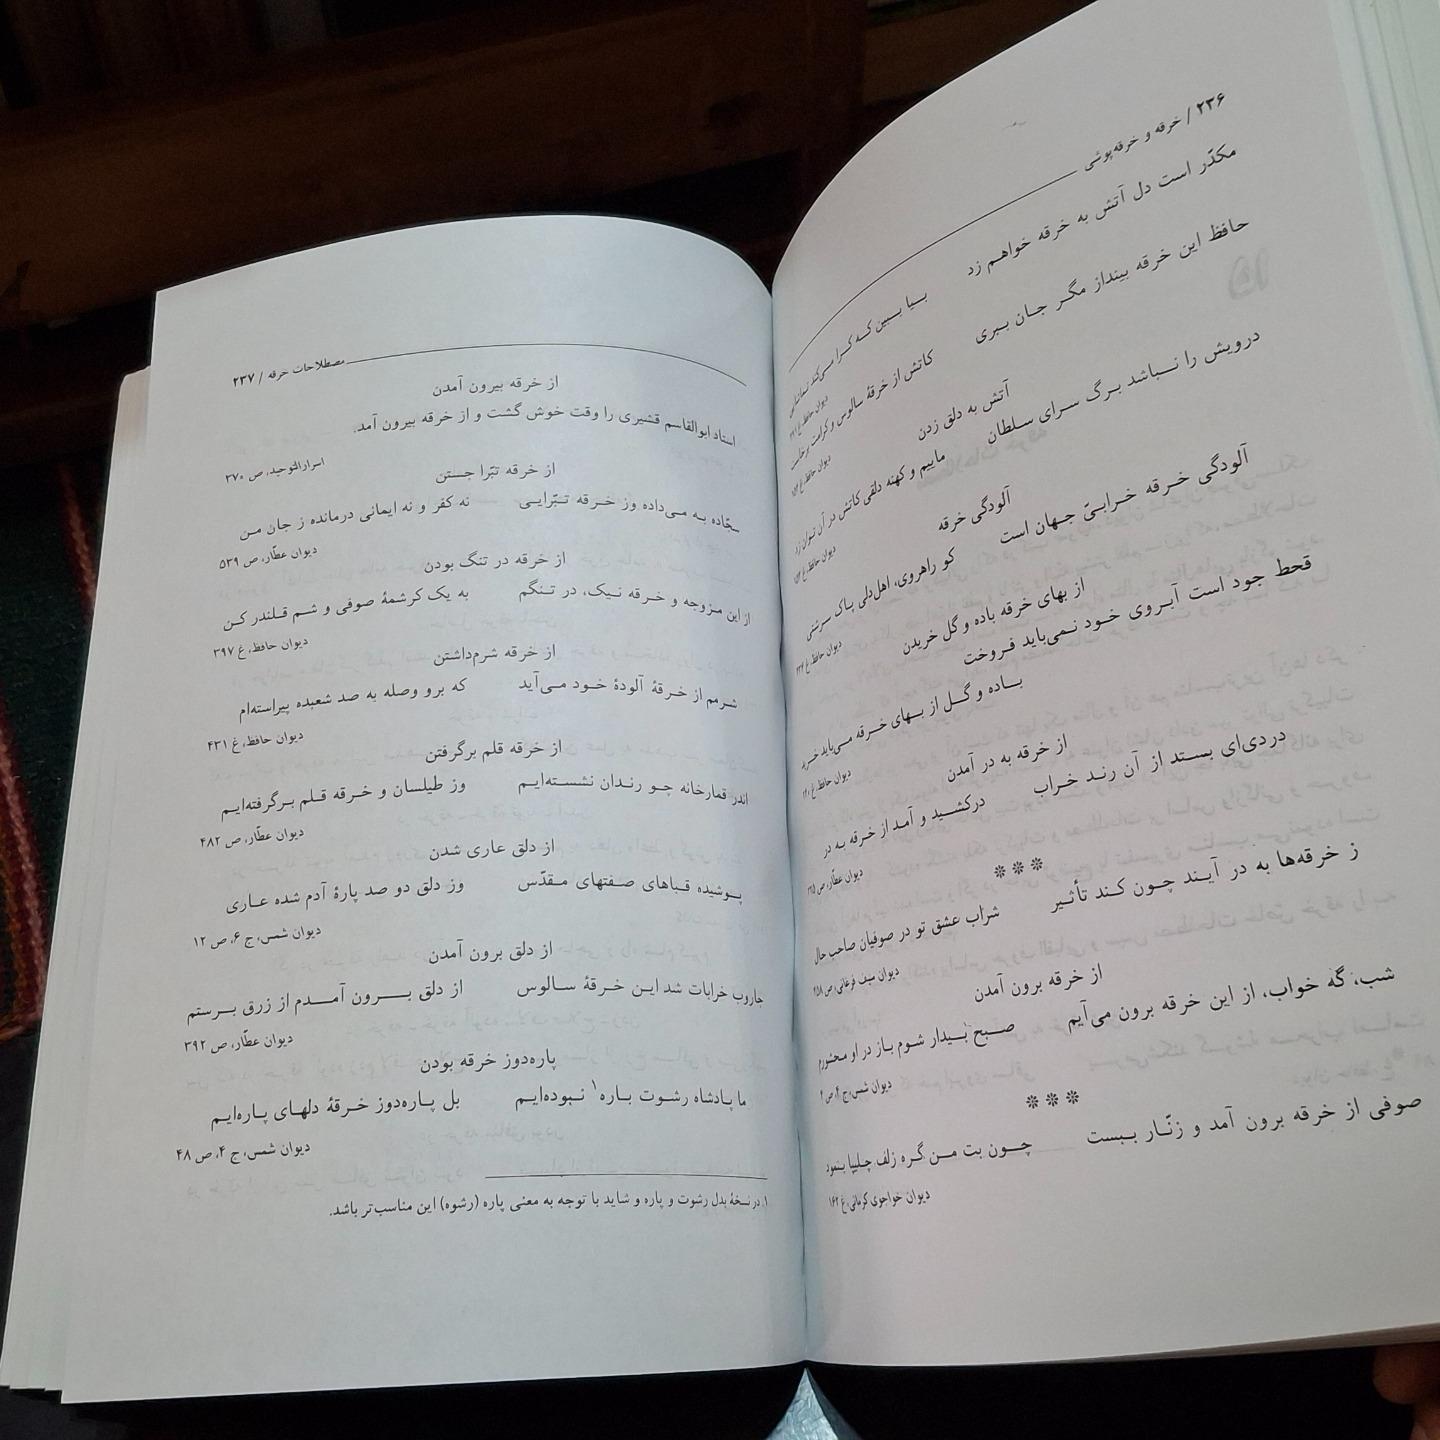 ۲۳۶ / خرقه و خرقه‌پوشی
مکدّر است دل آتش به خرقه خواهم زد
بیا ببین که کرا می‌کند تماشایی
دیوان حافظ، غ
حافظ این خرقه بینداز مگر جان ببری
کاتش از خرقهٔ سالوس و کرامت برخاست
دیوان حافظ، غ
آتش به دلق زدن
درویش را نباشد برگ سرای سلطان
ماییم و کهنه دلقی کاتش در آن توان زد
دیوان حافظ، غ
آلودگی خرقه
آلودگی خرقه خرابیّ جهان است
کو راهروی، اهل‌دلی پاک سرشتی
دیوان حافظ، غ
از بهای خرقه باده و گل خریدن
قحط جود است آبروی خود نمی‌باید فروخت
باده و گل از بهای خرقه می‌باید خرید
دیوان حافظ، غ
از خرقه به در آمدن
دردی‌ای بستد از آن رند خراب
درکشید و آمد از خرقه به در
دیوان عطّار، ص
***
ز خرقه‌ها به در آیند چون کند تأثیر
شراب عشق تو در صوفیان صاحب حال
دیوان سیف فرغانی، ص
از خرقه برون آمدن
شب، گه خواب، از این خرقه برون می‌آیم
صبح بیدار شوم باز در او محشورم
دیوان شمس، ج ۴، ص
***
صوفی از خرقه برون آمد و زنّار ببست
چون بت من گره زلف چلیپا بنمود
دیوان خواجوی کرمانی، غ ۱۶۲
مصطلاحات خرقه / ۲۳۷
از خرقه بیرون آمدن
استاد ابوالقاسم قشیری را وقت خوش گشت و از خرقه بیرون آمد.
اسرارالتوحید، ص ۳۷۰
از خرقه تبّرا جستن
سجّاده به می‌داده وز خرقه تبّرایی
نه کفر و نه ایمانی درمانده ز جان من
دیوان عطّار، ص ۵۳۹
از خرقه در تنگ بودن
از این مزوجه و خرقه نیک، در تنگم
به یک کرشمهٔ صوفی و شم قلندر کن
دیوان حافظ، غ ۳۹۷
از خرقه شرم‌داشتن
شرمم از خرقهٔ آلودهٔ خود می‌آید
که برو وصله به صد شعبده پیراسته‌ام
دیوان حافظ، غ ۴۳۱
از خرقه قلم برگرفتن
اندر قمارخانه چو رندان نشسته‌ایم
وز طیلسان و خرقه قلم برگرفته‌ایم
دیوان عطّار، ص ۴۸۲
از دلق عاری شدن
پوشیده قباهای صفتهای مقدّس
وز دلق دو صد پارهٔ آدم شده عاری
دیوان شمس، ج ۶، ص ۱۲
از دلق برون آمدن
جاروب خرابات شد این خرقهٔ سالوس
از دلق برون آمدم از زرق برستم
دیوان عطّار، ص ۳۹۲
پاره‌دوز خرقه بودن
ما پادشاه رشوت باره۱ نبوده‌ایم
بل پاره‌دوز خرقهٔ دلهای پاره‌ایم
دیوان شمس، ج ۴، ص ۴۸
۱. در نسخهٔ بدل رشوت و پاره و شاید با توجه به معنی پاره (رشوه) این مناسب‌تر باشد.